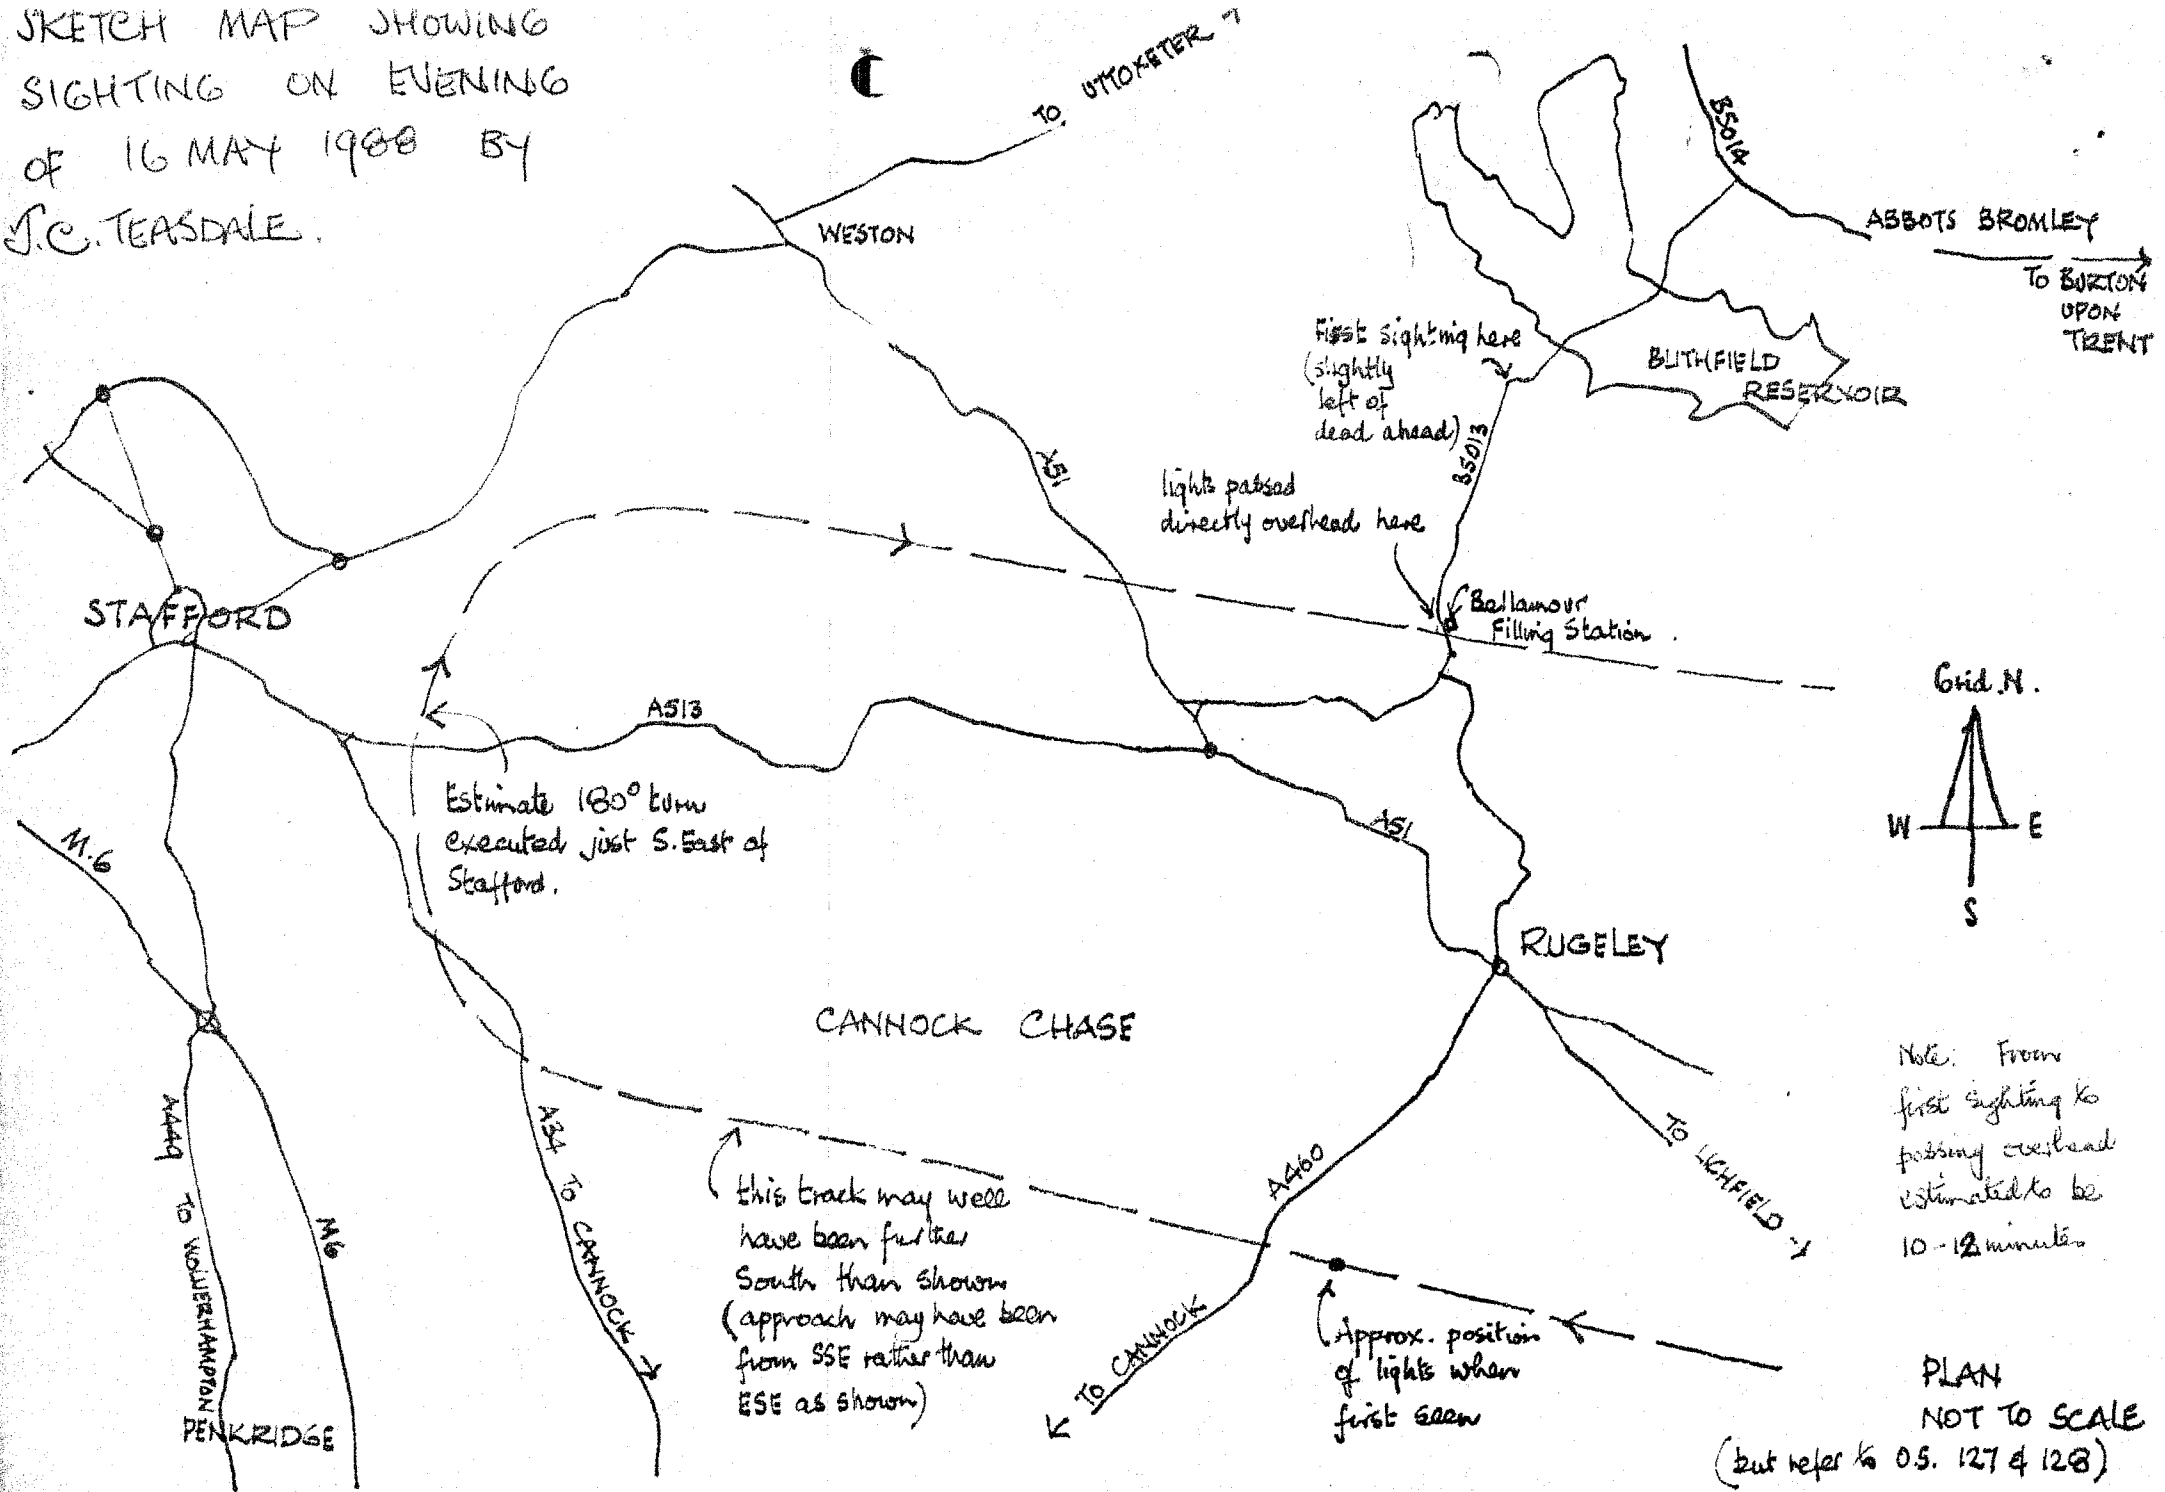 SKETCH MAP SHOWING
SIGHTING ON EVENING
OF 16 MAY 1988 BY
J.C. TEASDALE.
TO UTTOXETER
WESTON
B5014
ABBOTS BROMLEY
TO BURTON
UPON
TRENT
First sighting here
(slightly
left of
dead ahead)
BLITHFIELD
RESERVOIR
B5013
A51
lights passed
directly overhead here
Bellamour
Filling Station.
STAFFORD
A513
Grid.N.
W E
S
Estimate 180° turn
executed just S.East of
Stafford.
M.6
A51
RUGELEY
CANNOCK CHASE
Note: From
first sighting to
passing overhead
estimated to be
10-12 minutes
A449 TO WOLVERHAMPTON
M6
A34 TO CANNOCK
this track may well
have been further
South than shown
(approach may have been
from SSE rather than
ESE as shown)
A460
TO CANNOCK
TO LICHFIELD
Approx. position
of lights when
first seen
PENKRIDGE
PLAN
NOT TO SCALE
(but refer to O.S. 127 & 128)